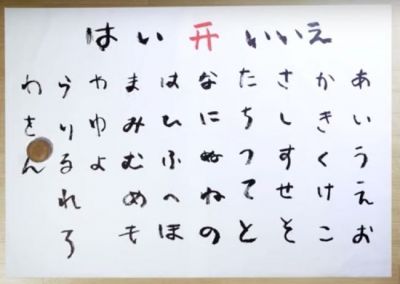 はい 开 いいえ
あいうえお
かきくけこ
さしすせそ
たちつてと
なにぬねの
はひふへほ
まみむめも
やゆよ
らりるれろ
わをん